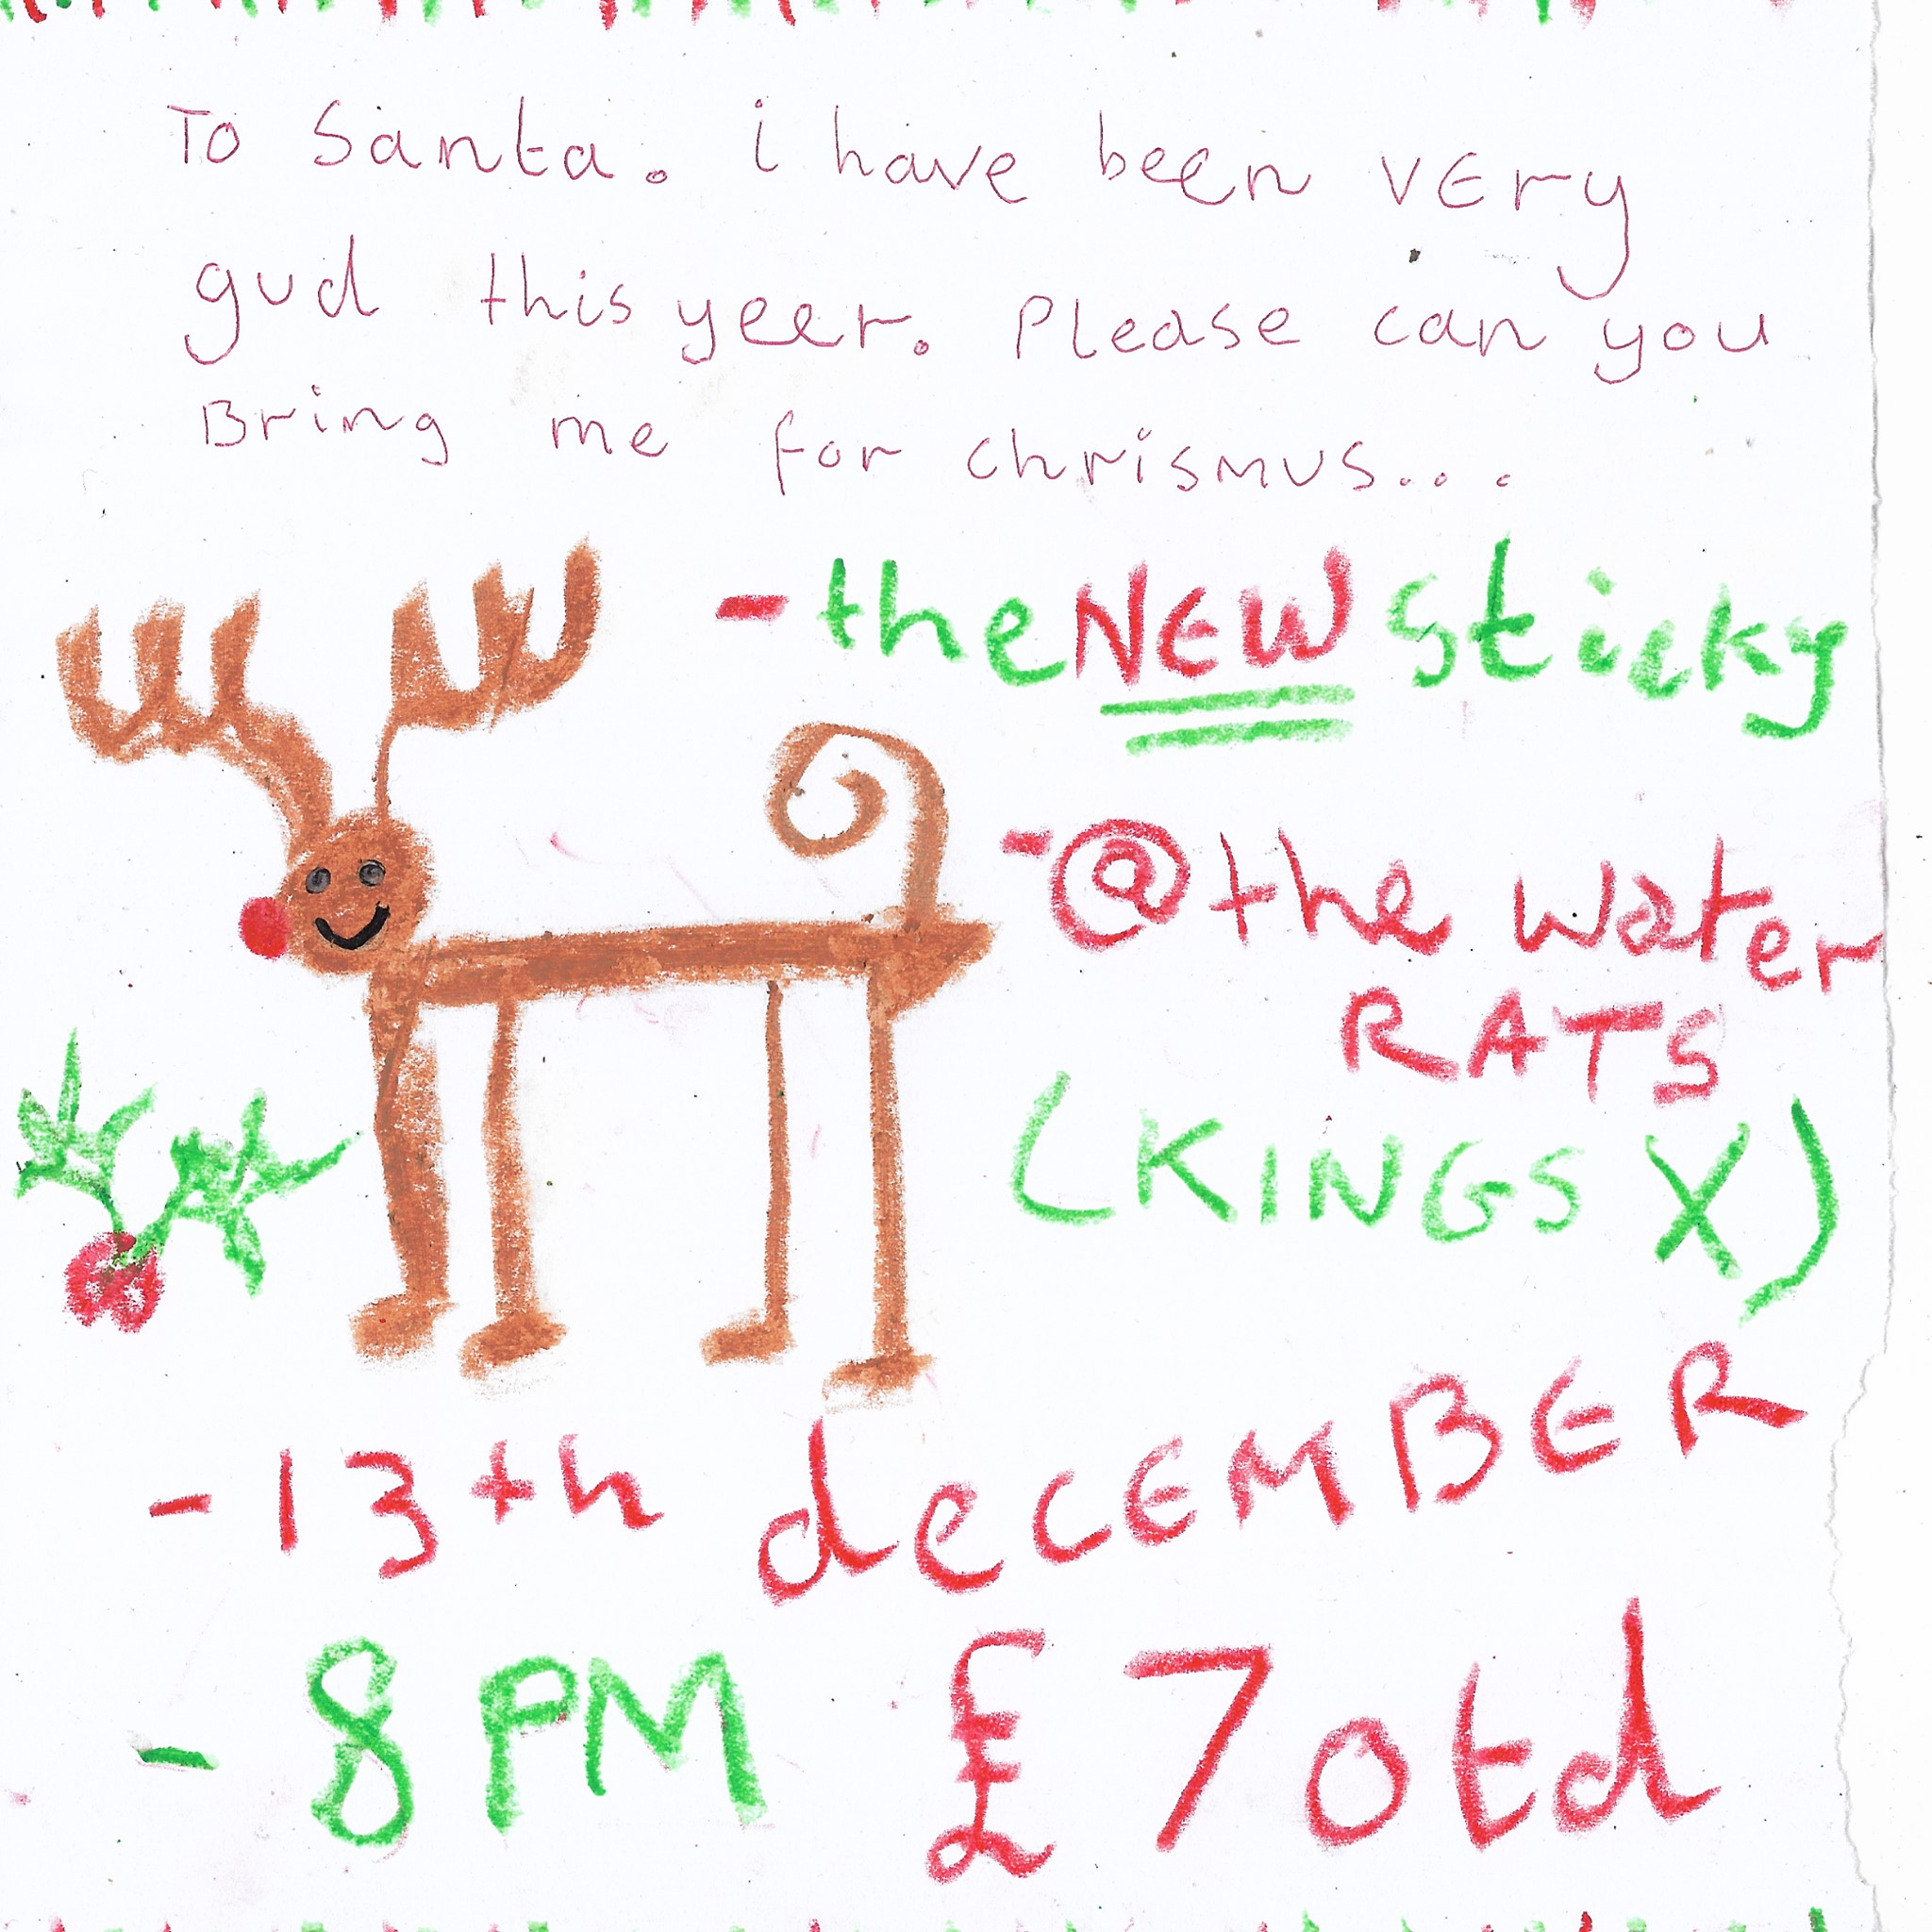 To Santa. i have been very
gud this yeer. Please can you
Bring me for chrismus...
- the NEW sticky
- @ the water
RATS
(KINGS X)
- 13th deCEMBER
- 8 PM £7 otd